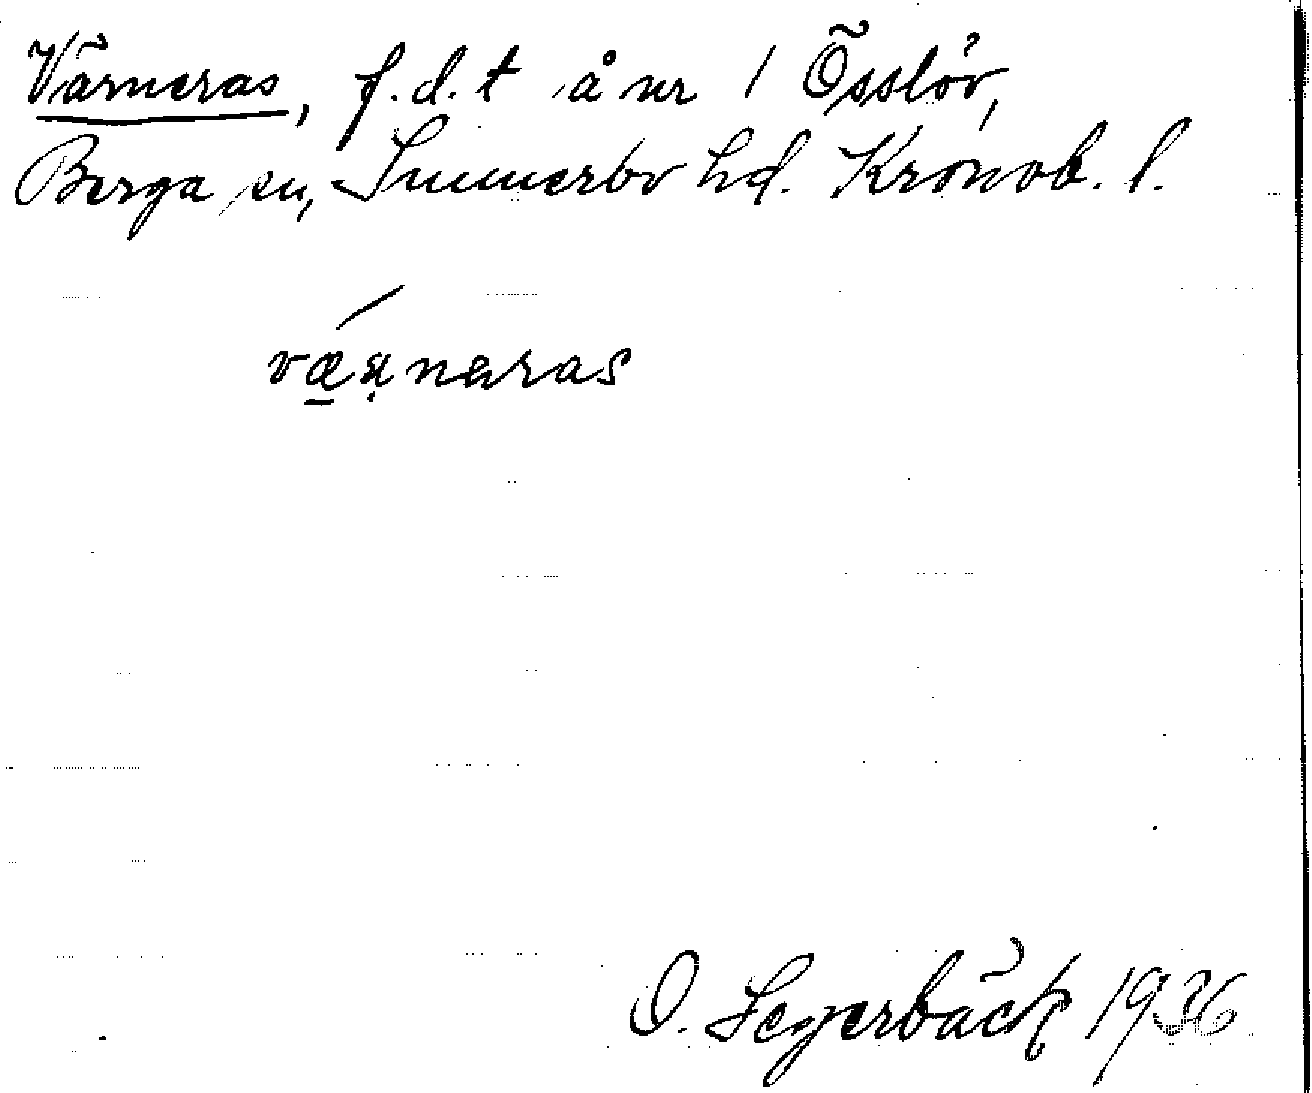 Värneras, f.d.t å nr 1 Össlöv,
Berga sn, Sunnerbo hd. Kronob. l.
O. Segerbäck 1936